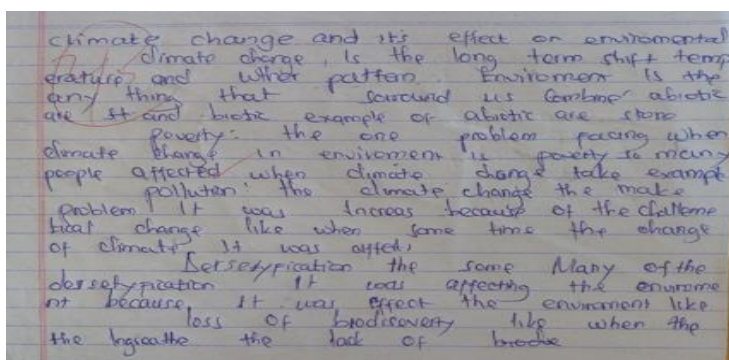 climate change and it's effect on enviromental
climate change, Is the long term shift temp
erature and pattan. Enviroment is the
any thing that sorround us Combme abiotic
are It and biotic example of abiotic are stone
poverty: the one problem pacing when
climate change in enviroment is poverty so many
people affected when climate change take exampl
pollution: the climate change the make
problem It was Increas because of the
tical change like when some time the change
of climate It was affed,
the some Many of the
It was affecting the envirome
nt because, It was effect the enviroment like
loss of biodiscoverty like when the
the the lack of